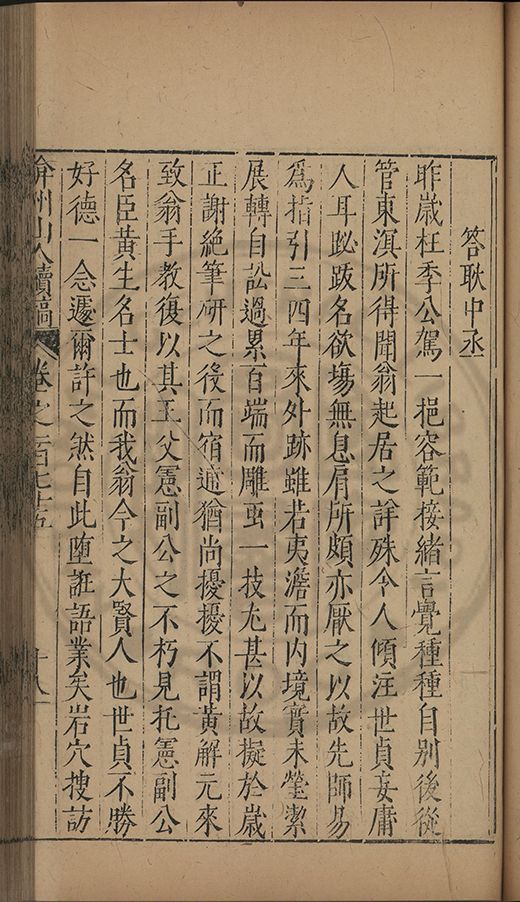 答耿中丞
昨歲枉季公駕一挹容範接緒言覺種種自别後從
管東溟所得聞翁起居之詳殊令人傾注世貞妄庸
人耳跛跋名欲塲無息肩所頗亦厭之以故先師易
爲指引三四年來外跡雖若夷澹而内境實未瑩潔
展轉自訟過累百端而雕虫一技尤甚以故擬於歲
正謝絶筆研之役而宿逋猶尚擾擾不謂黄解元來
致翁手教復以其王父憲副公之不朽見托憲副公
名臣黄生名士也而我翁今之大賢人也世貞不勝
好德一念遽爾許之然自此墮誑語業矣岩穴搜訪
弇州山人續稿 卷之一百七十五 十八